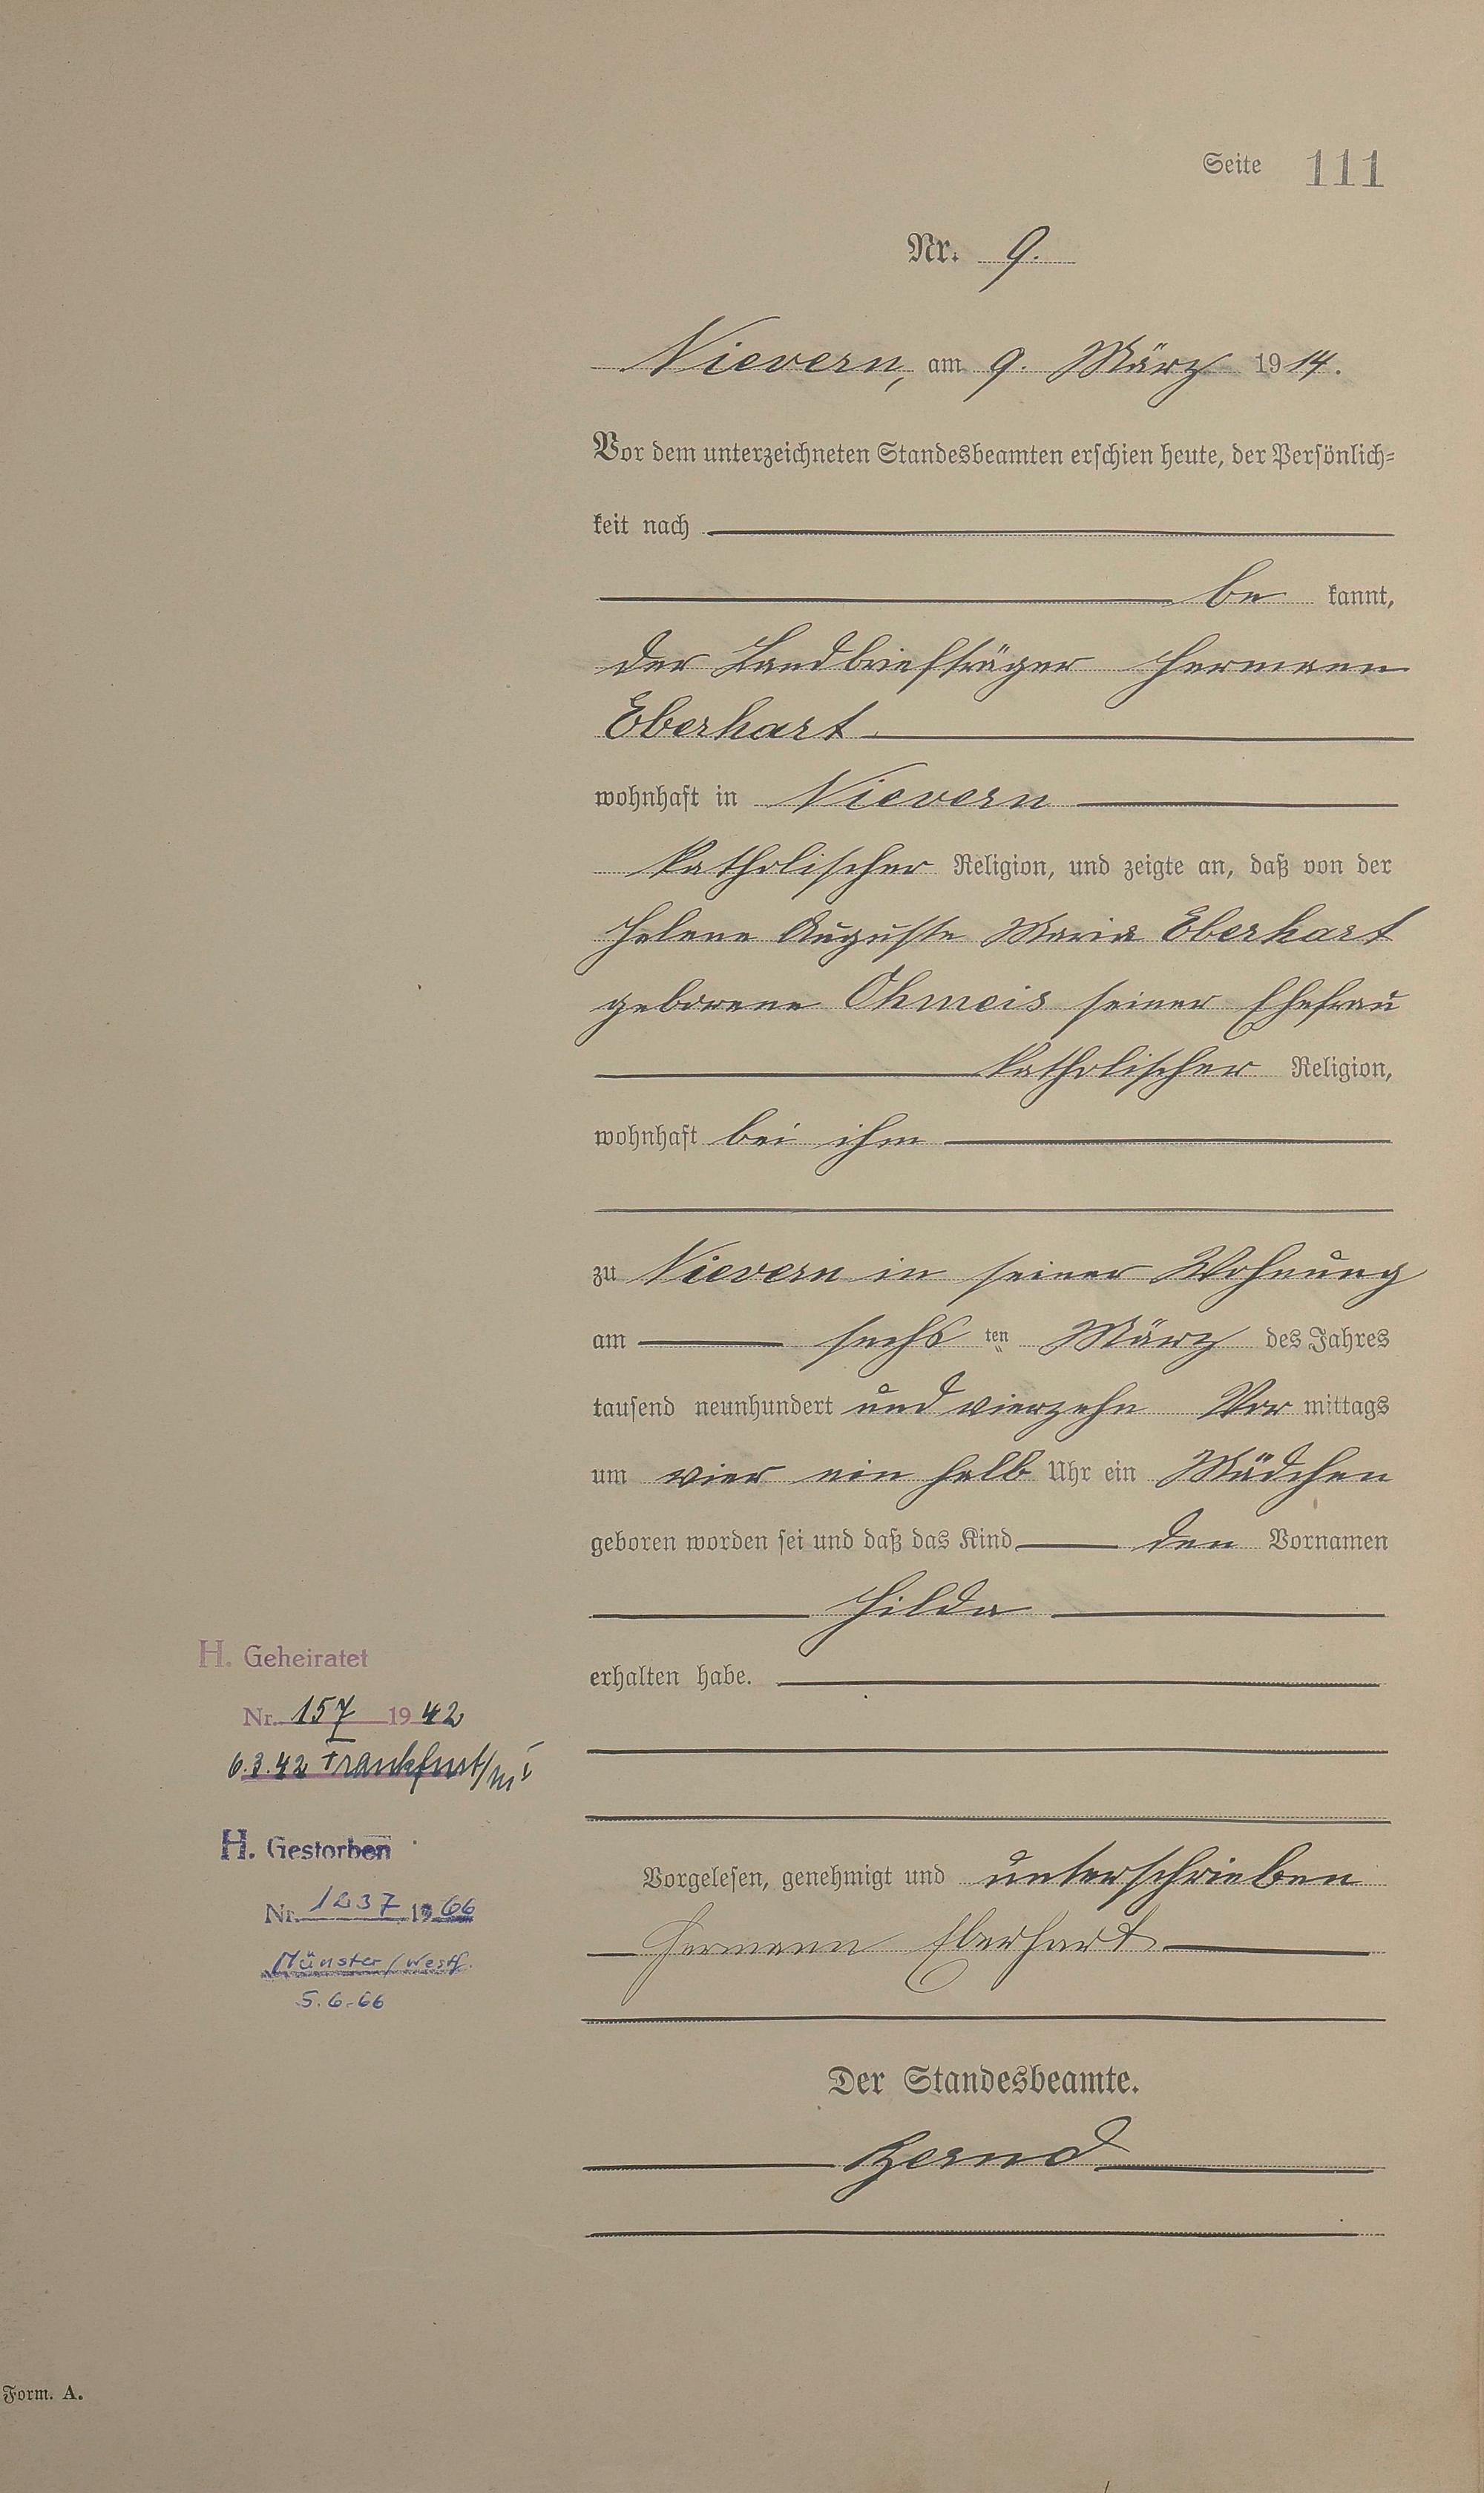 Seite 111
Nr. 9.
Nievern, am 9. März 1914.
Vor dem unterzeichneten Standesbeamten erschien heute, der Persönlich-
keit nach
be kannt,
der Landbriefträger Hermann
Eberhart
wohnhaft in Nievern
katholischer Religion, und zeigte an, daß von der
Helene Auguste Maria Eberhart
geborene Ohmeis seiner Ehefrau
katholischer Religion,
wohnhaft bei ihm
zu Nievern in seiner Wohnung
am sechs ten März des Jahres
tausend neunhundert und vierzehn Vor mittags
um vier ein halb Uhr ein Mädchen
geboren worden sei und daß das Kind den Vornamen
Hilda
erhalten habe.
Vorgelesen, genehmigt und unterschrieben
Hermann Eberhart
Der Standesbeamte.
H. Geheiratet
Nr. 157 1942
6.3.42 Frankfurt/M
H. Gestorben
Nr. 1237 1966
Münster/Westf.
5.6.66
Form. A.